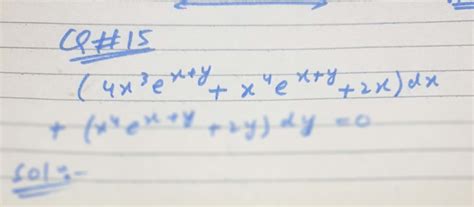 Q#15
(4x³e^{x+y} + x⁴e^{x+y} + 2x)dx
+ (x⁴e^{x+y} + 2y)dy = 0
Sol:-